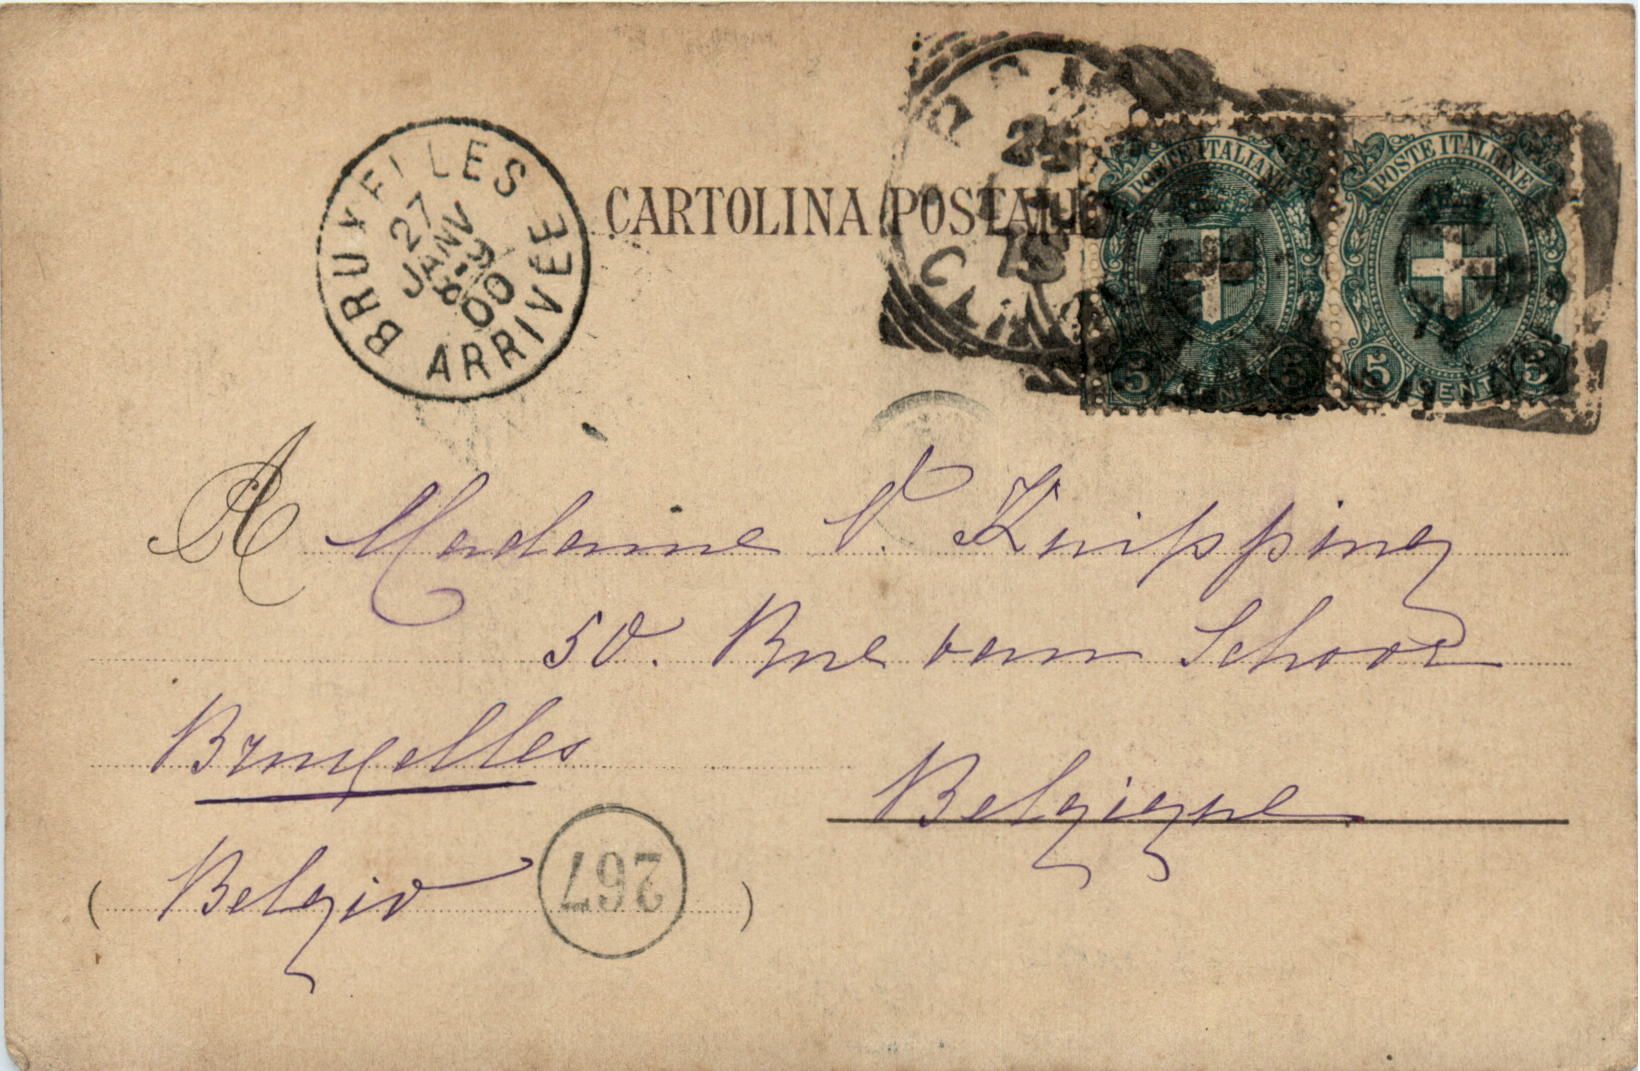 BRUXELLES
27
JANV
8-9
00
ARRIVÉE
CARTOLINA POSTALE
25
POSTE ITALIANE
POSTE ITALIANE
5 CENT 5
5 CENT 5
A Madame V. Knipping
50. Rue van Schoor
Bruxelles
Belgique
(Belgio)
267